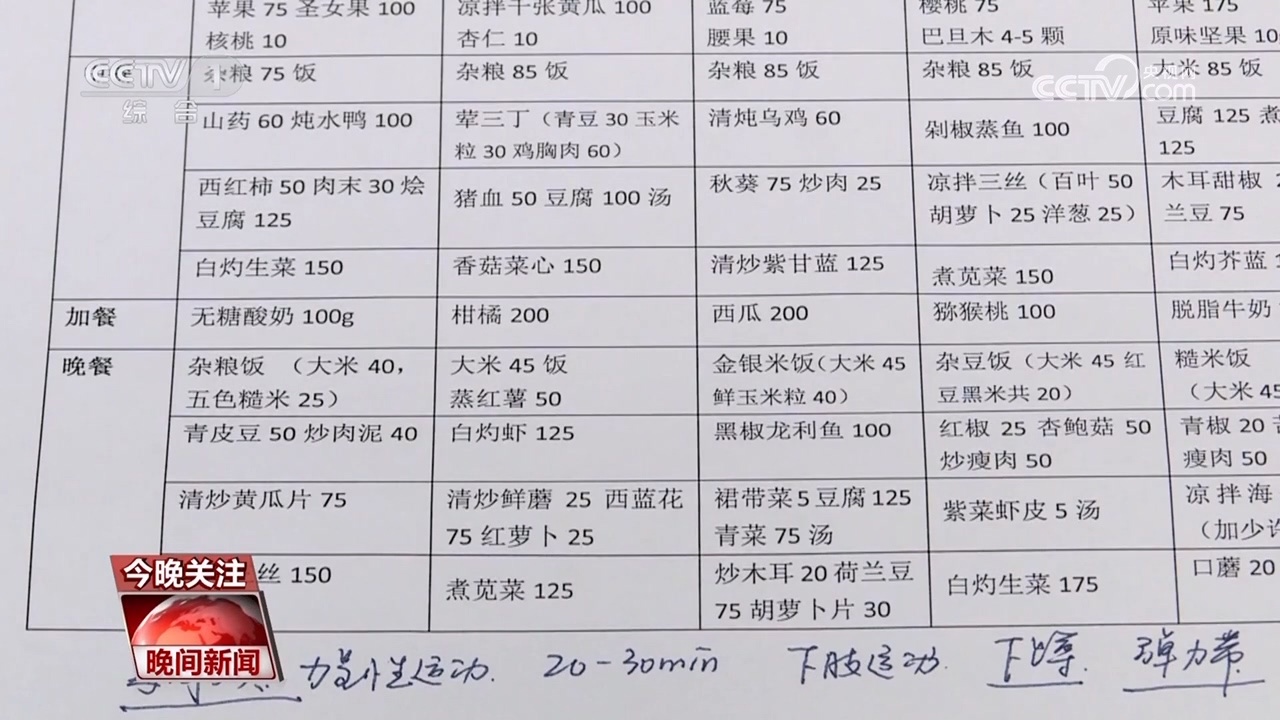 苹果 75 圣女果 100
核桃 10
凉拌千张黄瓜 100
杏仁 10
蓝莓 75
腰果 10
樱桃 75
巴旦木 4-5 颗
苹果 175
原味坚果 10
杂粮 75 饭
杂粮 85 饭
杂粮 85 饭
杂粮 85 饭
大米 85 饭
山药 60 炖水鸭 100
荤三丁（青豆 30 玉米
粒 30 鸡胸肉 60）
清炖乌鸡 60
剁椒蒸鱼 100
豆腐 125 煮
125
西红柿 50 肉末 30 烩
豆腐 125
猪血 50 豆腐 100 汤
秋葵 75 炒肉 25
凉拌三丝（百叶 50
胡萝卜 25 洋葱 25）
木耳甜椒
兰豆 75
白灼生菜 150
香菇菜心 150
清炒紫甘蓝 125
煮苋菜 150
白灼芥蓝
加餐
无糖酸奶 100g
柑橘 200
西瓜 200
猕猴桃 100
脱脂牛奶
晚餐
杂粮饭 （大米 40，
五色糙米 25）
大米 45 饭
蒸红薯 50
金银米饭（大米 45
鲜玉米粒 40）
杂豆饭（大米 45 红
豆黑米共 20）
糙米饭
（大米 45
青皮豆 50 炒肉泥 40
白灼虾 125
黑椒龙利鱼 100
红椒 25 杏鲍菇 50
炒瘦肉 50
青椒 20
瘦肉 50
清炒黄瓜片 75
清炒鲜蘑 25 西蓝花
75 红萝卜 25
裙带菜 5 豆腐 125
青菜 75 汤
紫菜虾皮 5 汤
凉拌海
（加少许
丝 150
煮苋菜 125
炒木耳 20 荷兰豆
75 胡萝卜片 30
白灼生菜 175
口蘑 20
力量性运动. 20-30min 下肢运动. 下蹲. 弹力带.
CCTV 1
综合
央视网
CCTV.com
今晚关注
晚间新闻